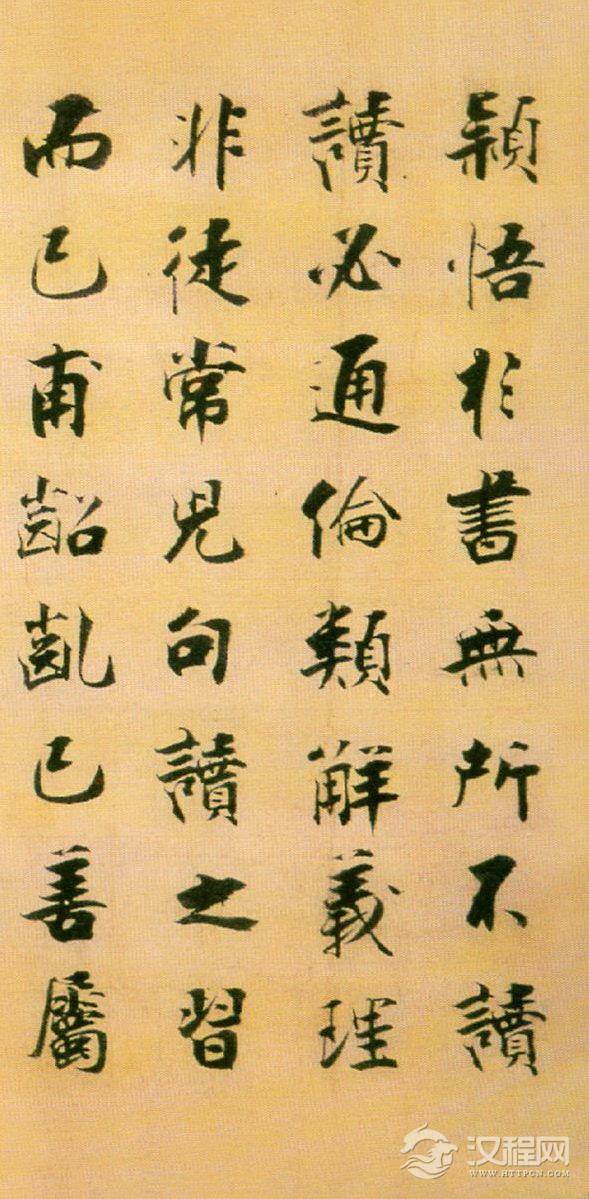 穎悟於書無所不讀
讀必通倫類解義理
非徒常児句讀之習
而已甫齠亂已善屬
汉程网
WWW.HTTPCN.COM